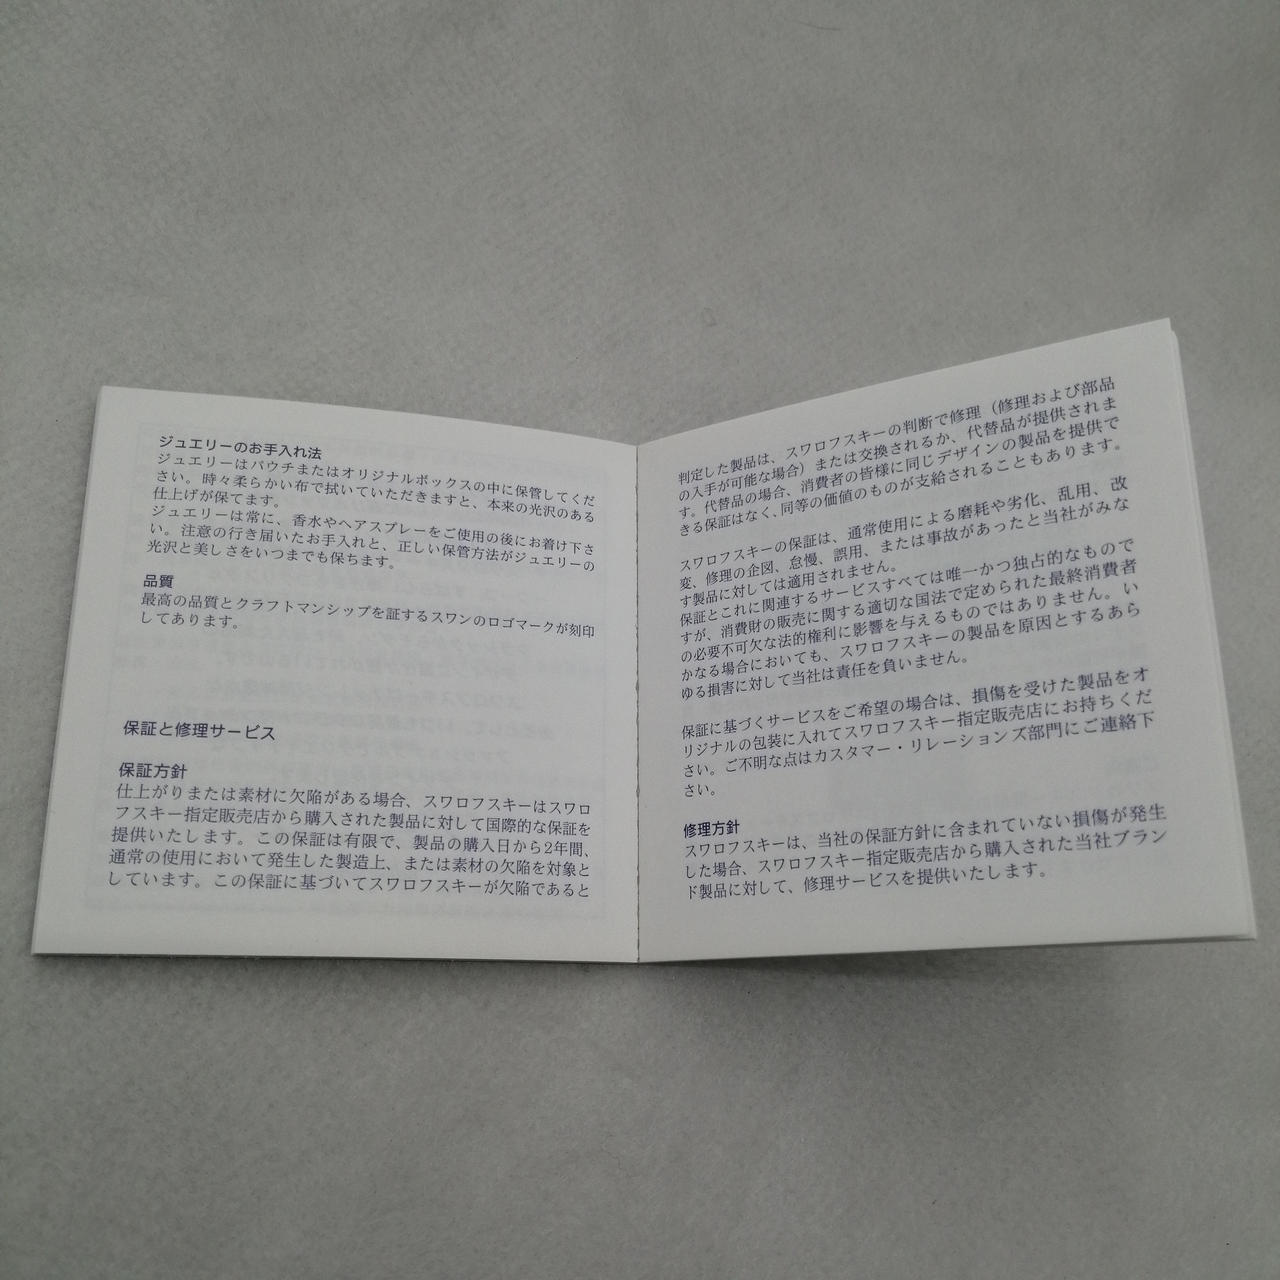 ジュエリーのお手入れ法
ジュエリーはパウチまたはオリジナルボックスの中に保管してくだ
さい。時々柔らかい布で拭いていただきますと、本来の光沢のある
仕上げが保てます。
ジュエリーは常に、香水やヘアスプレーをご使用の後にお着け下さ
い。注意の行き届いたお手入れと、正しい保管方法がジュエリーの
光沢と美しさをいつまでも保ちます。
品質
最高の品質とクラフトマンシップを証するスワンのロゴマークが刻印
してあります。
保証と修理サービス
保証方針
仕上がりまたは素材に欠陥がある場合、スワロフスキーはスワロ
フスキー指定販売店から購入された製品に対して国際的な保証を
提供いたします。この保証は有限で、製品の購入日から2年間、
通常の使用において発生した製造上、または素材の欠陥を対象と
しています。この保証に基づいてスワロフスキーが欠陥であると
判定した製品は、スワロフスキーの判断で修理（修理および部品
の入手が可能な場合）または交換されるか、代替品が提供されま
す。代替品の場合、消費者の皆様に同じデザインの製品を提供で
きる保証はなく、同等の価値のものが支給されることもあります。
スワロフスキーの保証は、通常使用による磨耗や劣化、乱用、改
変、修理の企図、怠慢、誤用、または事故があったと当社がみな
す製品に対しては適用されません。
保証とこれに関連するサービスすべては唯一かつ独占的なもので
すが、消費財の販売に関する適切な国法で定められた最終消費者
の必要不可欠な法的権利に影響を与えるものではありません。い
かなる場合においても、スワロフスキーの製品を原因とするあら
ゆる損害に対して当社は責任を負いません。
保証に基づくサービスをご希望の場合は、損傷を受けた製品をオ
リジナルの包装に入れてスワロフスキー指定販売店にお持ちくだ
さい。ご不明な点はカスタマー・リレーションズ部門にご連絡下
さい。
修理方針
スワロフスキーは、当社の保証方針に含まれていない損傷が発生
した場合、スワロフスキー指定販売店から購入された当社ブラン
ド製品に対して、修理サービスを提供いたします。